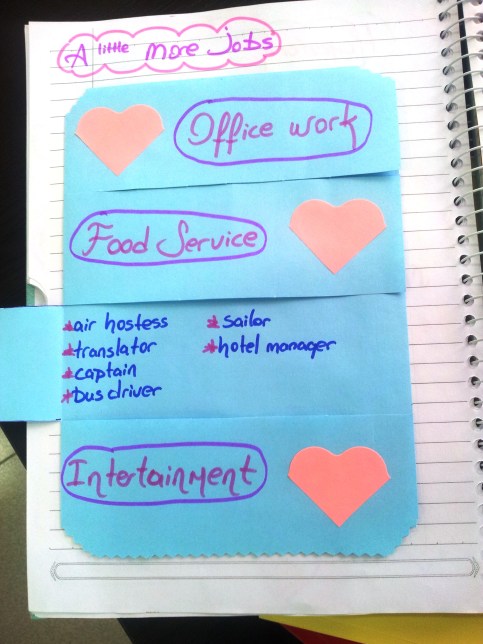 A little more jobs
Office work
Food Service
*air hostess
*translator
*captain
*bus driver
*sailor
*hotel manager
Intertainment